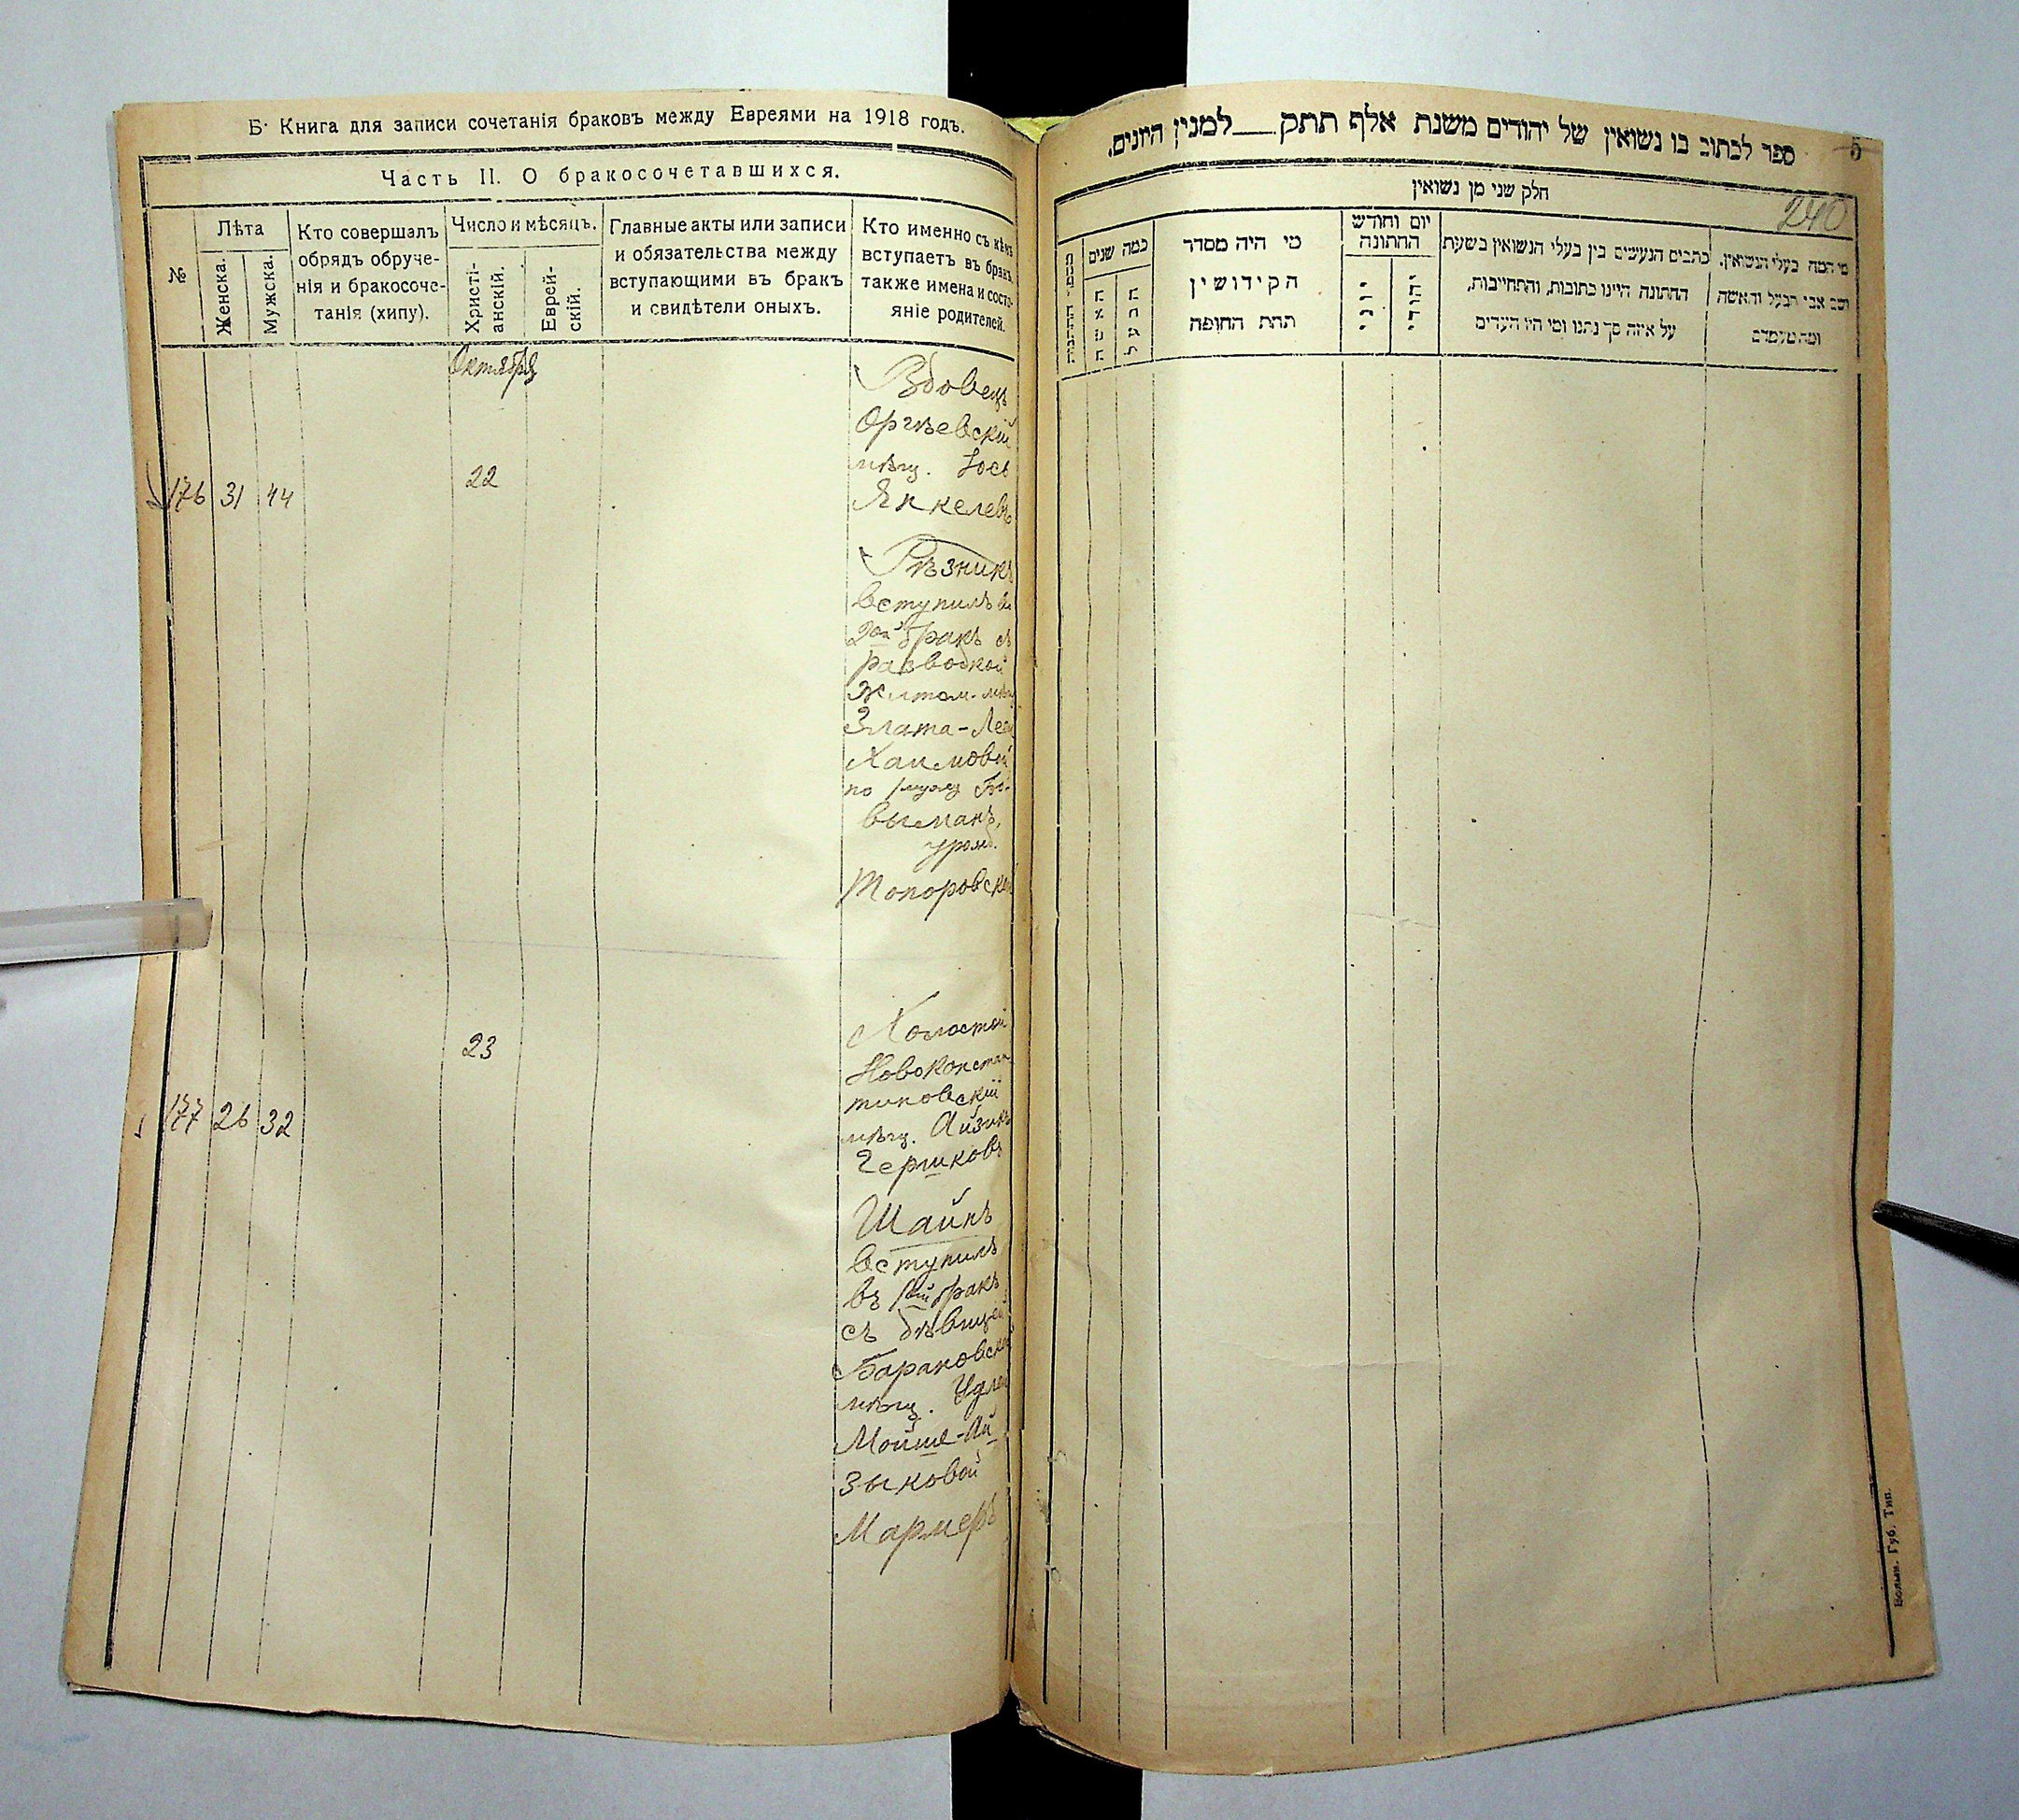 Б. Книга для записи сочетанія браковъ между Евреями на 1918 годъ.
Часть II. О бракосочетавшихся.
№
Лѣта
Женска.
Мужска.
Кто совершалъ
обрядъ обруче-
нія и бракосоче-
танія (хипу).
Число и мѣсяцъ.
Христі-
анскій.
Еврей-
скій.
Главные акты или записи
и обязательства между
вступающими въ бракъ
и свидѣтели оныхъ.
Кто именно съ кѣмъ
вступаетъ въ бракъ,
также имена и состо-
яніе родителей.
Октября
176 31 44
22
Вдовецъ
Оргѣевскій
мѣщ. Іось
Янкелевъ
Рѣзникъ
вступилъ во
2ой бракъ съ
разводкой
Житом. мѣщ
Злата-Лея
Хаимовой
по мужу
выманъ,
урожд.
Топоровской
177 26 32
23
Холостой
Новоконстан
тиновскій
мѣщ. Айзикъ
Гершковъ
Шайнъ
вступилъ
въ 1ый бракъ
съ дѣвицей
Барановской
мѣщ.
Мойше-Ай
зыковой
Мармеръ
ספר לכתוב בו נשואין של יהודים משנת אלף תתק___למנין היונים.
5
240
חלק שני מן נשואין
מספר החתונה
כמה שנים
האשה
הבעל
מי היה מסדר
הקידושין
תחת החופה
יום וחודש
החתונה
יוני
יהודי
כתבים הנעשים בין בעלי הנשואין בשעת
החתונה היינו כתובות, והתחייבות,
על איזה סך נתנו ומי היו העדים
מי המה בעלי הנשואין.
ושם אבי הבעל והאשה
ומה מעמדם
Волын. Губ. Тип.